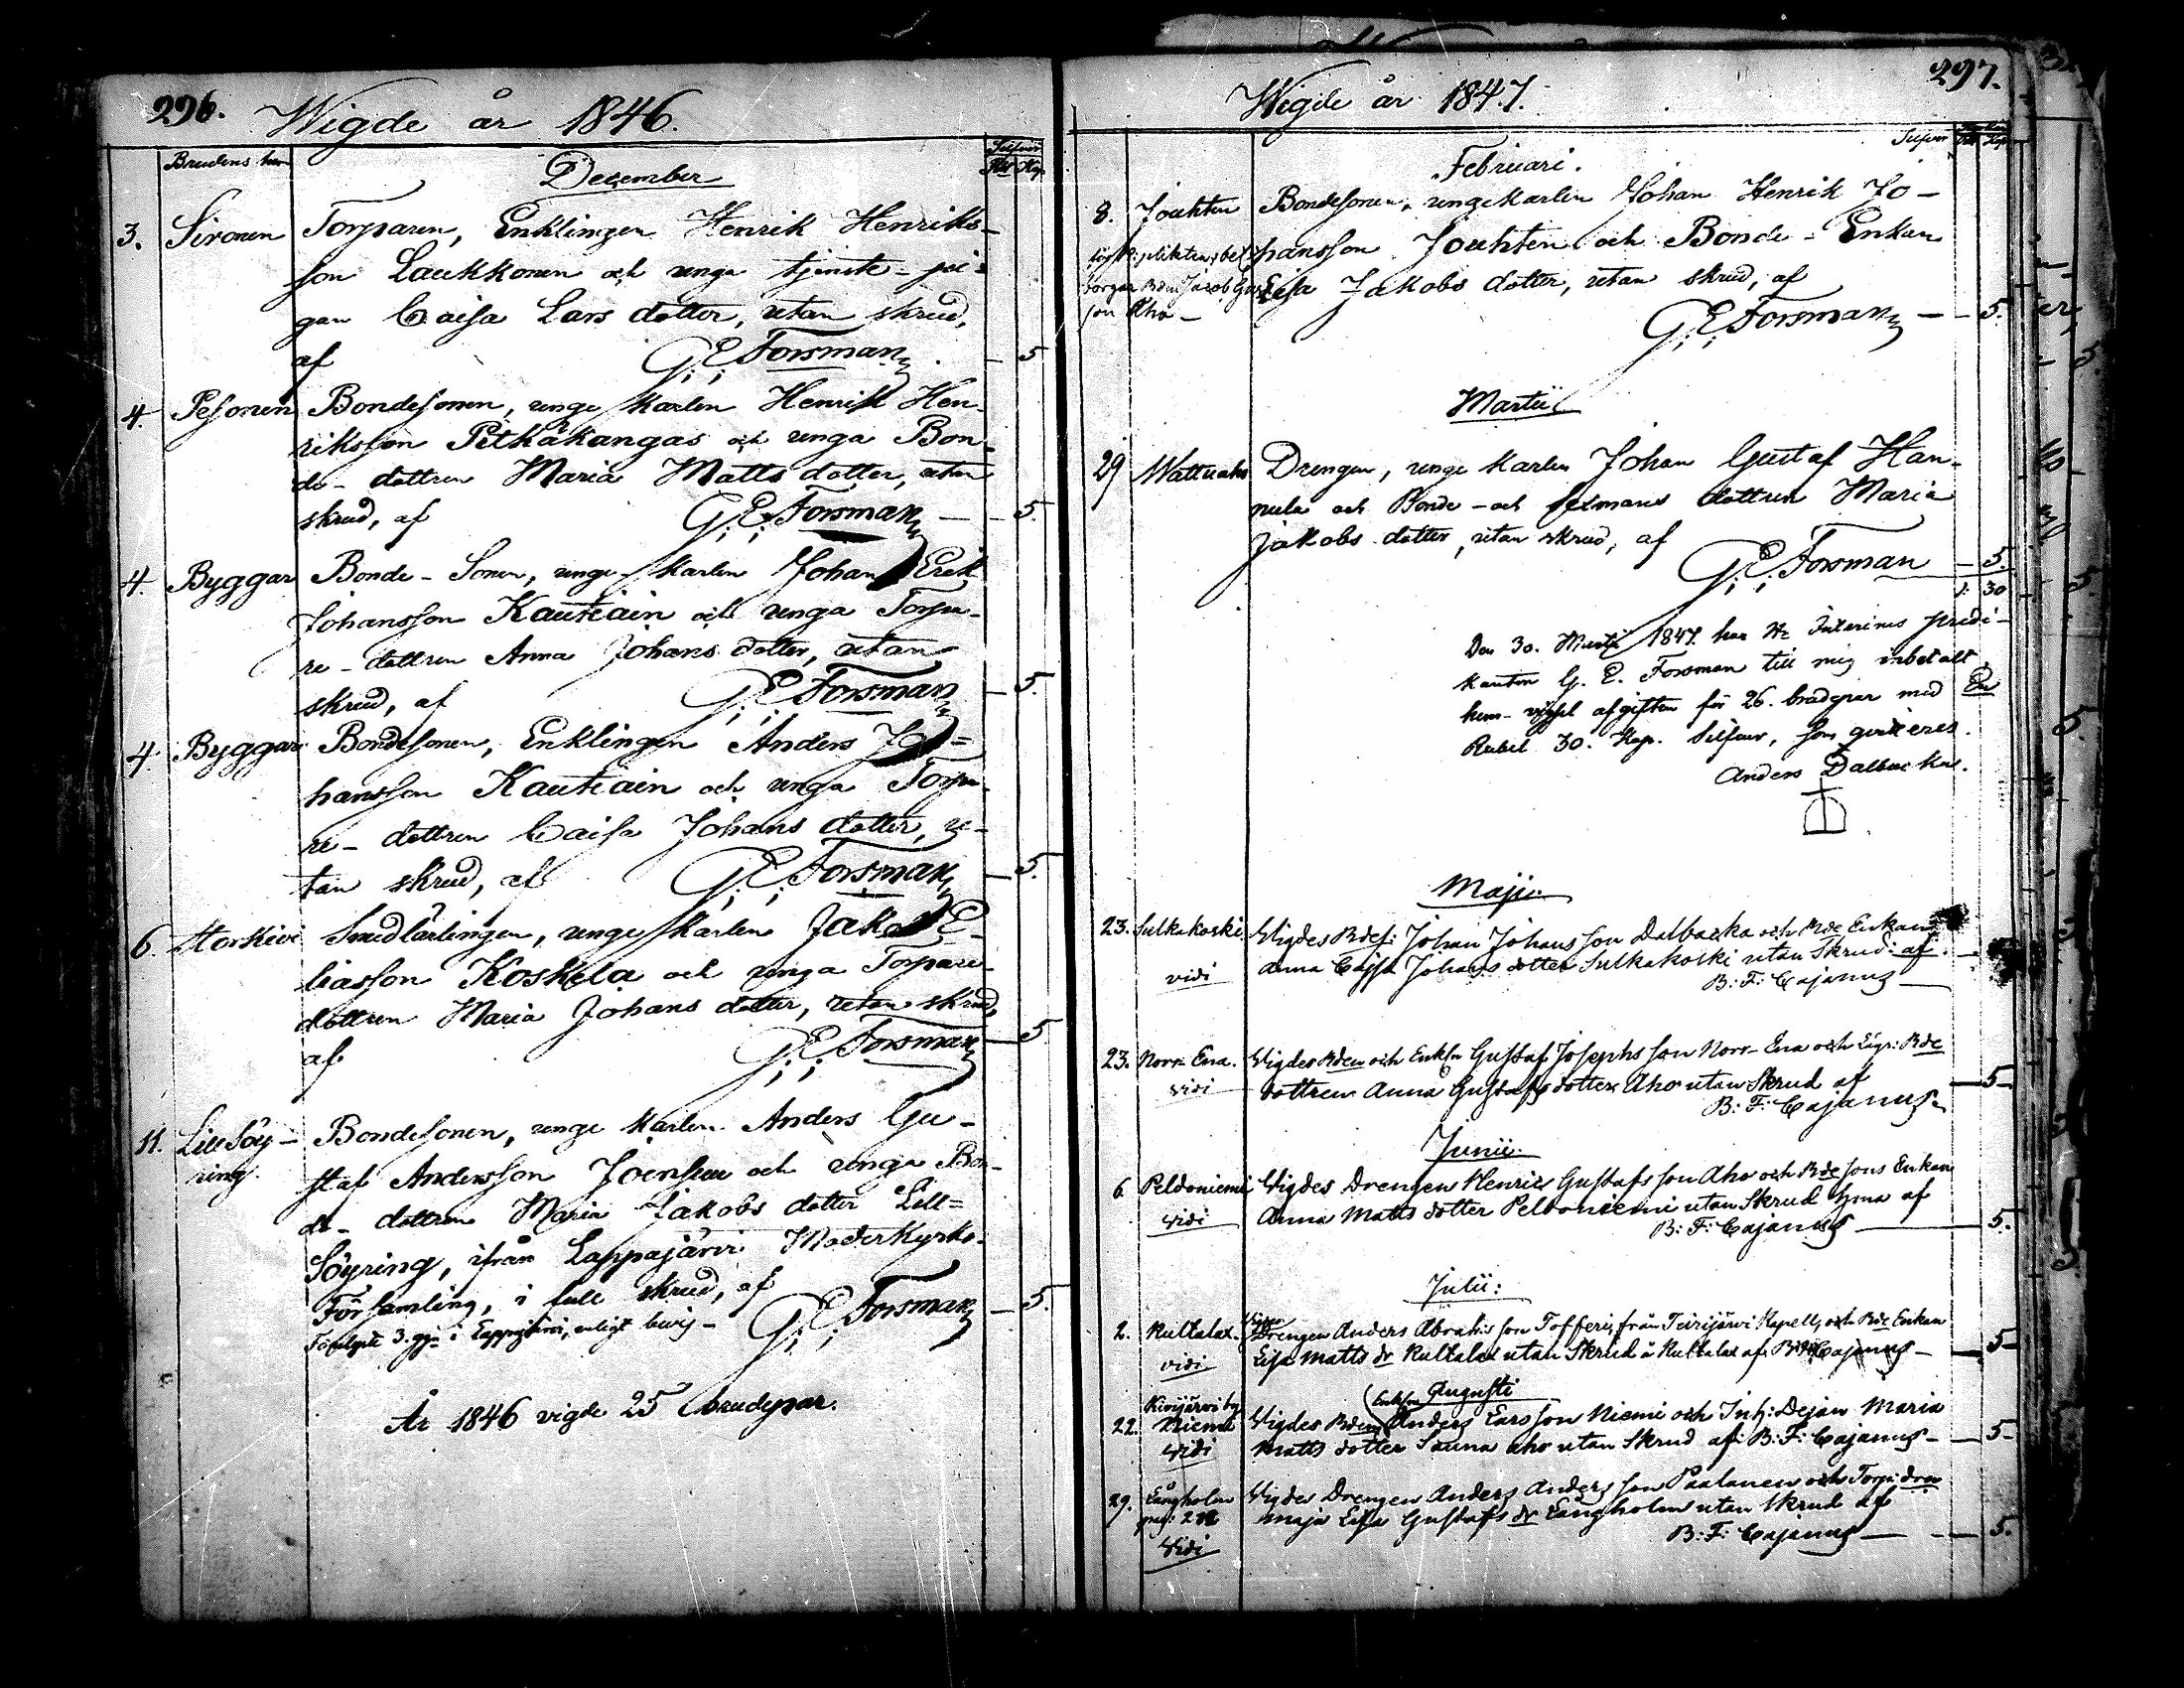 296.
Wigde år 1846.
Brudens hem
Silfver
Rub Kop.
December
3. Sironen Torparen, Enklingen Henrik Henriks-
son Laukkonen och unga tjenste-pi-
gan Caisa Lars dotter, utan skrud,
af G. E. Forsman. — 5
4. Pesonen Bondesonen, unge karlen Henrik Hen-
riksson Pitkäkangas och unga Bon-
de-dottren Maria Matts dotter, utan
skrud, af G. E. Forsman — 5.
4. Byggar Bonde-Sonen, unge karlen Johan Erik
Johansson Kautiain och unga Torpa-
re-dottren Anna Johans dotter, utan
skrud, af G. E. Forsman — 5.
4. Byggar Bondesonen, Enklingen Anders Jo=
hansson Kautiain och unga Torpa-
re-dottren Caisa Johans dotter, u-
tan skrud, af G. E. Forsman — 5.
6. Storkivi Smedlärlingen, unge karlen Jakob E-
liasson Koskela och unga Torpare-
dottren Maria Johans dotter, utan skrud,
af G. E. Forsman — 5
11. Lill Söy- Bondesonen, unge karlen Anders Gu-
ring. staf Andersson Joensuu och unga Bon-
de-dottren Maria Jakobs dotter Lill=
Söyring, ifrån Lappajärvi Moderkyrko-
Församling, i full skrud, af
3. ggr i Lappajärvi, enligt bevis — G. E. Forsman — 5.
År 1846 vigde 25 brudepar.
297.
Wigde år 1847.
Silfver
Rub Kop
Februari.
8. Jouhten Bondesonen, unge karlen Johan Henrik Jo-
hansson Jouhten och Bonde-Enkan
Jacob Lisa Jakobs dotter, utan skrud, af
son Aho — G. E. Forsman — 5.
Martii
29 Wattuaho Drengen, unge karlen Johan Gustaf Han-
nula och Bonde-och sexmans dottren Maria
Jakobs dotter, utan skrud, af
G. E. Forsman — 5.
1: 30
Den 30. Martii 1847. har Hr Interims predi-
kanten G. E. Forsman till mig inbetalt
hem-vigsel afgiften för 26. brudepar med En
Rubel 30. Kop. Silfver, som qvitteras.
Anders Dalbacka.
Maji:
23. Sulkakoski Vigdes Bdes: Johan Johans son Dalbacka och Bde Enkan
vidi Anna Cajsa Johans dotter Sulkakoski utan Skrud: af.
B: F: Cajanus —
23. Norr-Ena. Vigdes Bden och Enkln Gustaf Josephs son Norr-Ena och Bde
vidi dottren Anna Gustafs dotter Aho utan Skrud af — 5-
B: F: Cajanus.
Junii:
6 Peldoniemi Vigdes Drengen Henric Gustafs son Aho och Bde sons Enkan
vidi Anna Matts dotter Peldoniemi utan Skrud af
B: F: Cajanus — 5.
Julii:
2. Kultalax. Drengen Anders Abrahs son Tofferi, från Teirijärvi Kapell, och Bde Enkan
vidi Lisa Matts dr Kultalax utan Skrud å Kultalax af B: F: Cajanus — 5-
Augusti
Kivijärvi by
22. Niemi Vigdes Bden Enkln Anders Larsson Niemi och Inh: Dejan Maria
vidi Matts dotter Saunaaho utan Skrud af: B: F: Cajanus — 5-
29. Långholm Vigdes Drengen Anders Anders son Paalanen och Torp: dren
vidi Maja Lisa Gustafs dr Långholm utan Skrud af
B: F: Cajanus — 5.